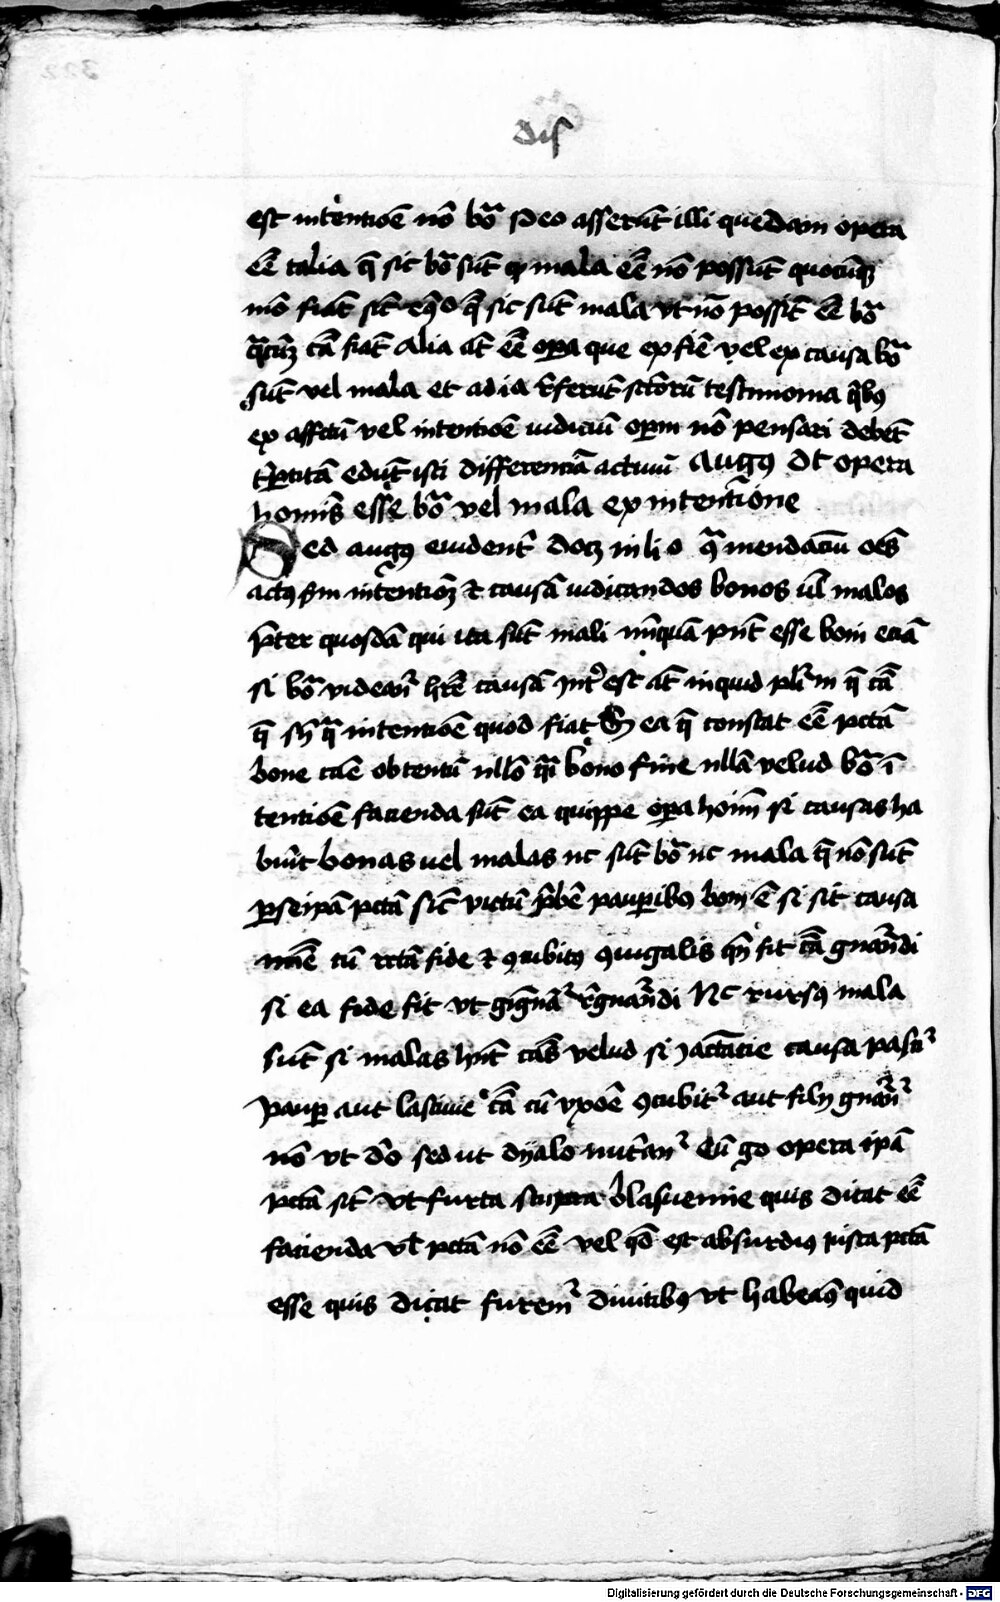 dis
est intentiōe nō bōa Ideo asserūt illi quedam opera
eē talia q̄ sic bōa sūt ꝙ mala eē nō possūt quocūqꝫ
mō fiāt sic̄ eqͦd q̄ sic sūt mala vt nō possīt eē bōa
q̄cūqꝫ cā fiāt Alia āt eē oꝑa que ex fiē vel ex causa bōa
sūt vel mala et ad ia r̄ferūt sctōrū testimonia qͥbꝰ
ex affctū vel intentiōe iudiciū oꝑm nō pensari debēt
Tꝑtitā edūt isti differenciā actuū Augꝰ dt opera
homīs esse bōa vel mala ex intentione
Sed augꝰ euident̄ docꝫ in li o qͣ mendaciū oēs
actꝰ sm intentioꝫ et causā iudicandos bonos ul malos
p̄ter quosdā qui ita sūt mali nūquā pn̄t esse boni eciā
si bōa videant̄ hr̄e causā Int̓est āt inquid pl̄imū q̄ cā
q̄ fi qͣ intentiōe quod fiat S ea q̄ constat eē pctā
bone cāe obtentu nllō qͣi bono fine nllā velud bōa ī
tentiōe facienda sūt ea quippe oꝑa hoīm si causas ha
buīt bonas uel malas nc sūt bōa nc mala q̄ nō sūt
ꝑ seipā pctā sic̄ victū p̄be pauꝑibꝰ bonū ē si sit causa
mīe cū rctā fide et ꝯcubitꝰ ꝯiugalis qn̄ fit cā gnandi
si ea fide fit vt gignāt̓ r̄gnandi Nc rursꝰ mala
sūt si malas hn̄t cās velud si Jactācie causa pascit̓
pauꝑ aut lasciuie cā cū vxōe ꝯcubit̓ aut filij gnant̓
nō vt dō sed ut dyalo nutriant̓ Cū go opera ipā
pctā sīt vt furta stupra blasuemie quis dicat eē
facienda vl pctā nō eē vel qd est absurdiꝰ iusta pctā
esse quis dicat furem̓ diuitibꝰ vt habeamꝰ quid
Digitalisierung gefördert durch die Deutsche Forschungsgemeinschaft - DFG